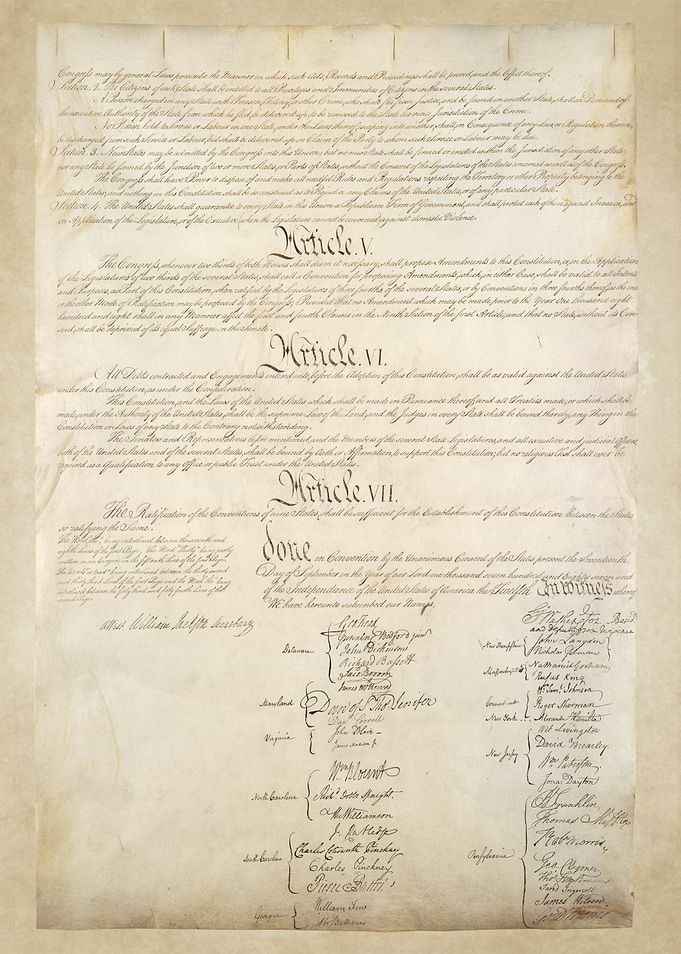 Congress may by general Laws prescribe the Manner in which such Acts, Records and Proceedings shall be proved, and the Effect thereof.
Section. 2. The Citizens of each State shall be entitled to all Privileges and Immunities of Citizens in the several States.
A Person charged in any State with Treason, Felony, or other Crime, who shall flee from Justice, and be found in another State, shall on Demand of
the executive Authority of the State from which he fled, be delivered up, to be removed to the State having Jurisdiction of the Crime.
No Person held to Service or Labour in one State, under the Laws thereof, escaping into another, shall, in Consequence of any Law or Regulation therein,
be discharged from such Service or Labour, but shall be delivered up on Claim of the Party to whom such Service or Labour may be due.
Section. 3. New States may be admitted by the Congress into this Union; but no new State shall be formed or erected within the Jurisdiction of any other State;
nor any State be formed by the Junction of two or more States, or Parts of States, without the Consent of the Legislatures of the States concerned as well as of the Congress.
The Congress shall have Power to dispose of and make all needful Rules and Regulations respecting the Territory or other Property belonging to the
United States; and nothing in this Constitution shall be so construed as to Prejudice any Claims of the United States, or of any particular State.
Section. 4. The United States shall guarantee to every State in this Union a Republican Form of Government, and shall protect each of them against Invasion; and
on Application of the Legislature, or of the Executive (when the Legislature cannot be convened) against domestic Violence.
Article. V.
The Congress, whenever two thirds of both Houses shall deem it necessary, shall propose Amendments to this Constitution, or, on the Application
of the Legislatures of two thirds of the several States, shall call a Convention for proposing Amendments, which, in either Case, shall be valid to all Intents
and Purposes, as Part of this Constitution, when ratified by the Legislatures of three fourths of the several States, or by Conventions in three fourths thereof, as the one
or the other Mode of Ratification may be proposed by the Congress; Provided that no Amendment which may be made prior to the Year One thousand eight
hundred and eight shall in any Manner affect the first and fourth Clauses in the Ninth Section of the first Article; and that no State, without its Con-
sent, shall be deprived of its equal Suffrage in the Senate.
Article. VI.
All Debts contracted and Engagements entered into, before the Adoption of this Constitution, shall be as valid against the United States
under this Constitution, as under the Confederation.
This Constitution, and the Laws of the United States which shall be made in Pursuance thereof; and all Treaties made, or which shall be
made, under the Authority of the United States, shall be the supreme Law of the Land; and the Judges in every State shall be bound thereby, any Thing in the
Constitution or Laws of any State to the Contrary notwithstanding.
The Senators and Representatives before mentioned, and the Members of the several State Legislatures, and all executive and judicial Officers,
both of the United States and of the several States, shall be bound by Oath or Affirmation, to support this Constitution; but no religious Test shall ever be
required as a Qualification to any Office or public Trust under the United States.
Article. VII.
The Ratification of the Conventions of nine States, shall be sufficient for the Establishment of this Constitution between the States
so ratifying the Same.
The Word, "the", being interlined between the seventh and
eighth Lines of the first Page, The Word "Thirty" being partly
written on an Erazure in the fifteenth Line of the first Page,
The Words "is tried" being interlined between the thirty second
and thirty third Lines of the first Page and the Word "the" being
interlined between the forty third and forty fourth Lines of the
second Page.
done in Convention by the Unanimous Consent of the States present the Seventeenth
Day of September in the Year of our Lord one thousand seven hundred and Eighty seven and
of the Independance of the United States of America the Twelfth In Witness whereof
We have hereunto subscribed our Names,
Attest William Jackson Secretary
Delaware
Geo: Read
Gunning Bedford jun
John Dickinson
Richard Bassett
Jaco: Broom
Maryland
James McHenry
Dan of St Thos Jenifer
Danl Carroll
Virginia
John Blair
James Madison Jr
North Carolina
Wm Blount
Richd Dobbs Spaight.
Hu Williamson
South Carolina
J. Rutledge
Charles Cotesworth Pinckney
Charles Pinckney
Pierce Butler.
Georgia
William Few
Abr Baldwin
Go Washington Presidt
and deputy from Virginia
New Hampshire
John Langdon
Nicholas Gilman
Massachusetts
Nathaniel Gorham
Rufus King
Connecticut
Wm Saml Johnson
Roger Sherman
New York
Alexander Hamilton
New Jersey
Wil: Livingston
David Brearley
Wm Paterson
Jona: Dayton
Pensylvania
B Franklin
Thomas Mifflin
Robt Morris
Geo. Clymer
Thos FitzSimons
Jared Ingersoll
James Wilson
Gouv Morris